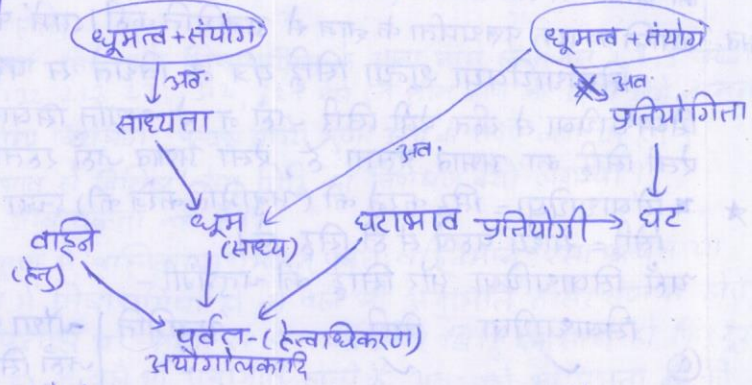 धूमत्व + संयोग
धूमत्व + संयोग
अव.
अव.
साध्यता
प्रतियोगिता
अव.
वह्नि
(हेतु)
धूम
(साध्य)
घटाभाव प्रतियोगी → घट
पर्वत - (हेत्वाधिकरण)
अयोगोलकादि